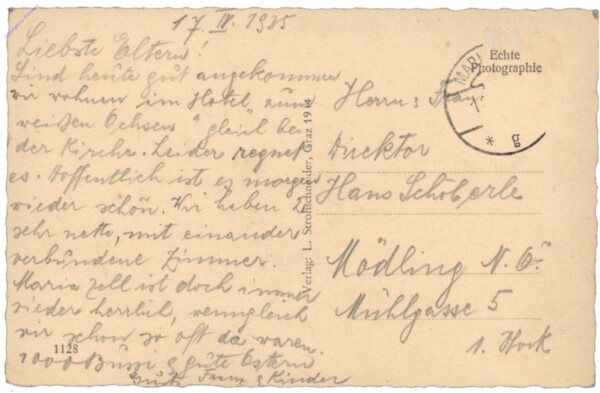 17. IV. 1935
Liebste Eltern!
Sind heute gut angekommen
wir wohnen im Hotel "zum
weißen Ochsen" gleich bei
der Kirche. Leider regnet
es. Hoffentlich ist es morgen
wieder schön. Wir haben 2
sehr nette, mit einander
verbundene Zimmer.
Maria Zell ist doch immer
wieder herrlich, wenngleich
wir schon so oft da waren.
1000 Bussi & gute Ostern
Franz & Kinder
1128
Verlag: L. Strohschneider, Graz
Echte
Photographie
MARI
* g
Herrn:
Direktor
Hans Schöberle
Mödling N. Ö.
Mühlgasse 5
1. Stock